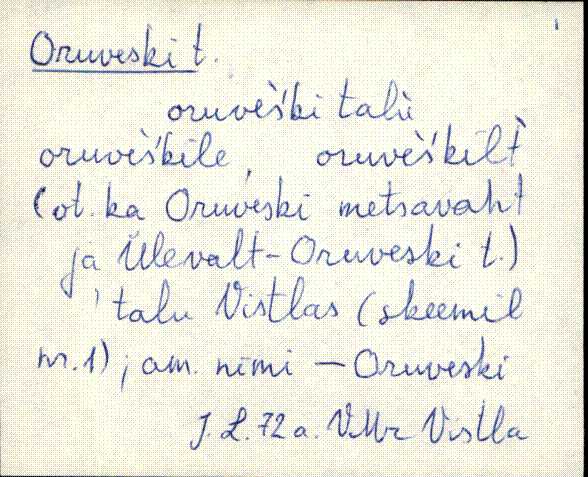 Oruveski t.
oruvèški talù
oruvèškile, oruvèškilt̀
(ot. ka Oruveski metsavaht
ja Ülevalt-Oruveski t.)
talu Vistlas (skeemil
nr. 1); am. nimi — Oruveski
J. L. 72 a. VMr Vistla